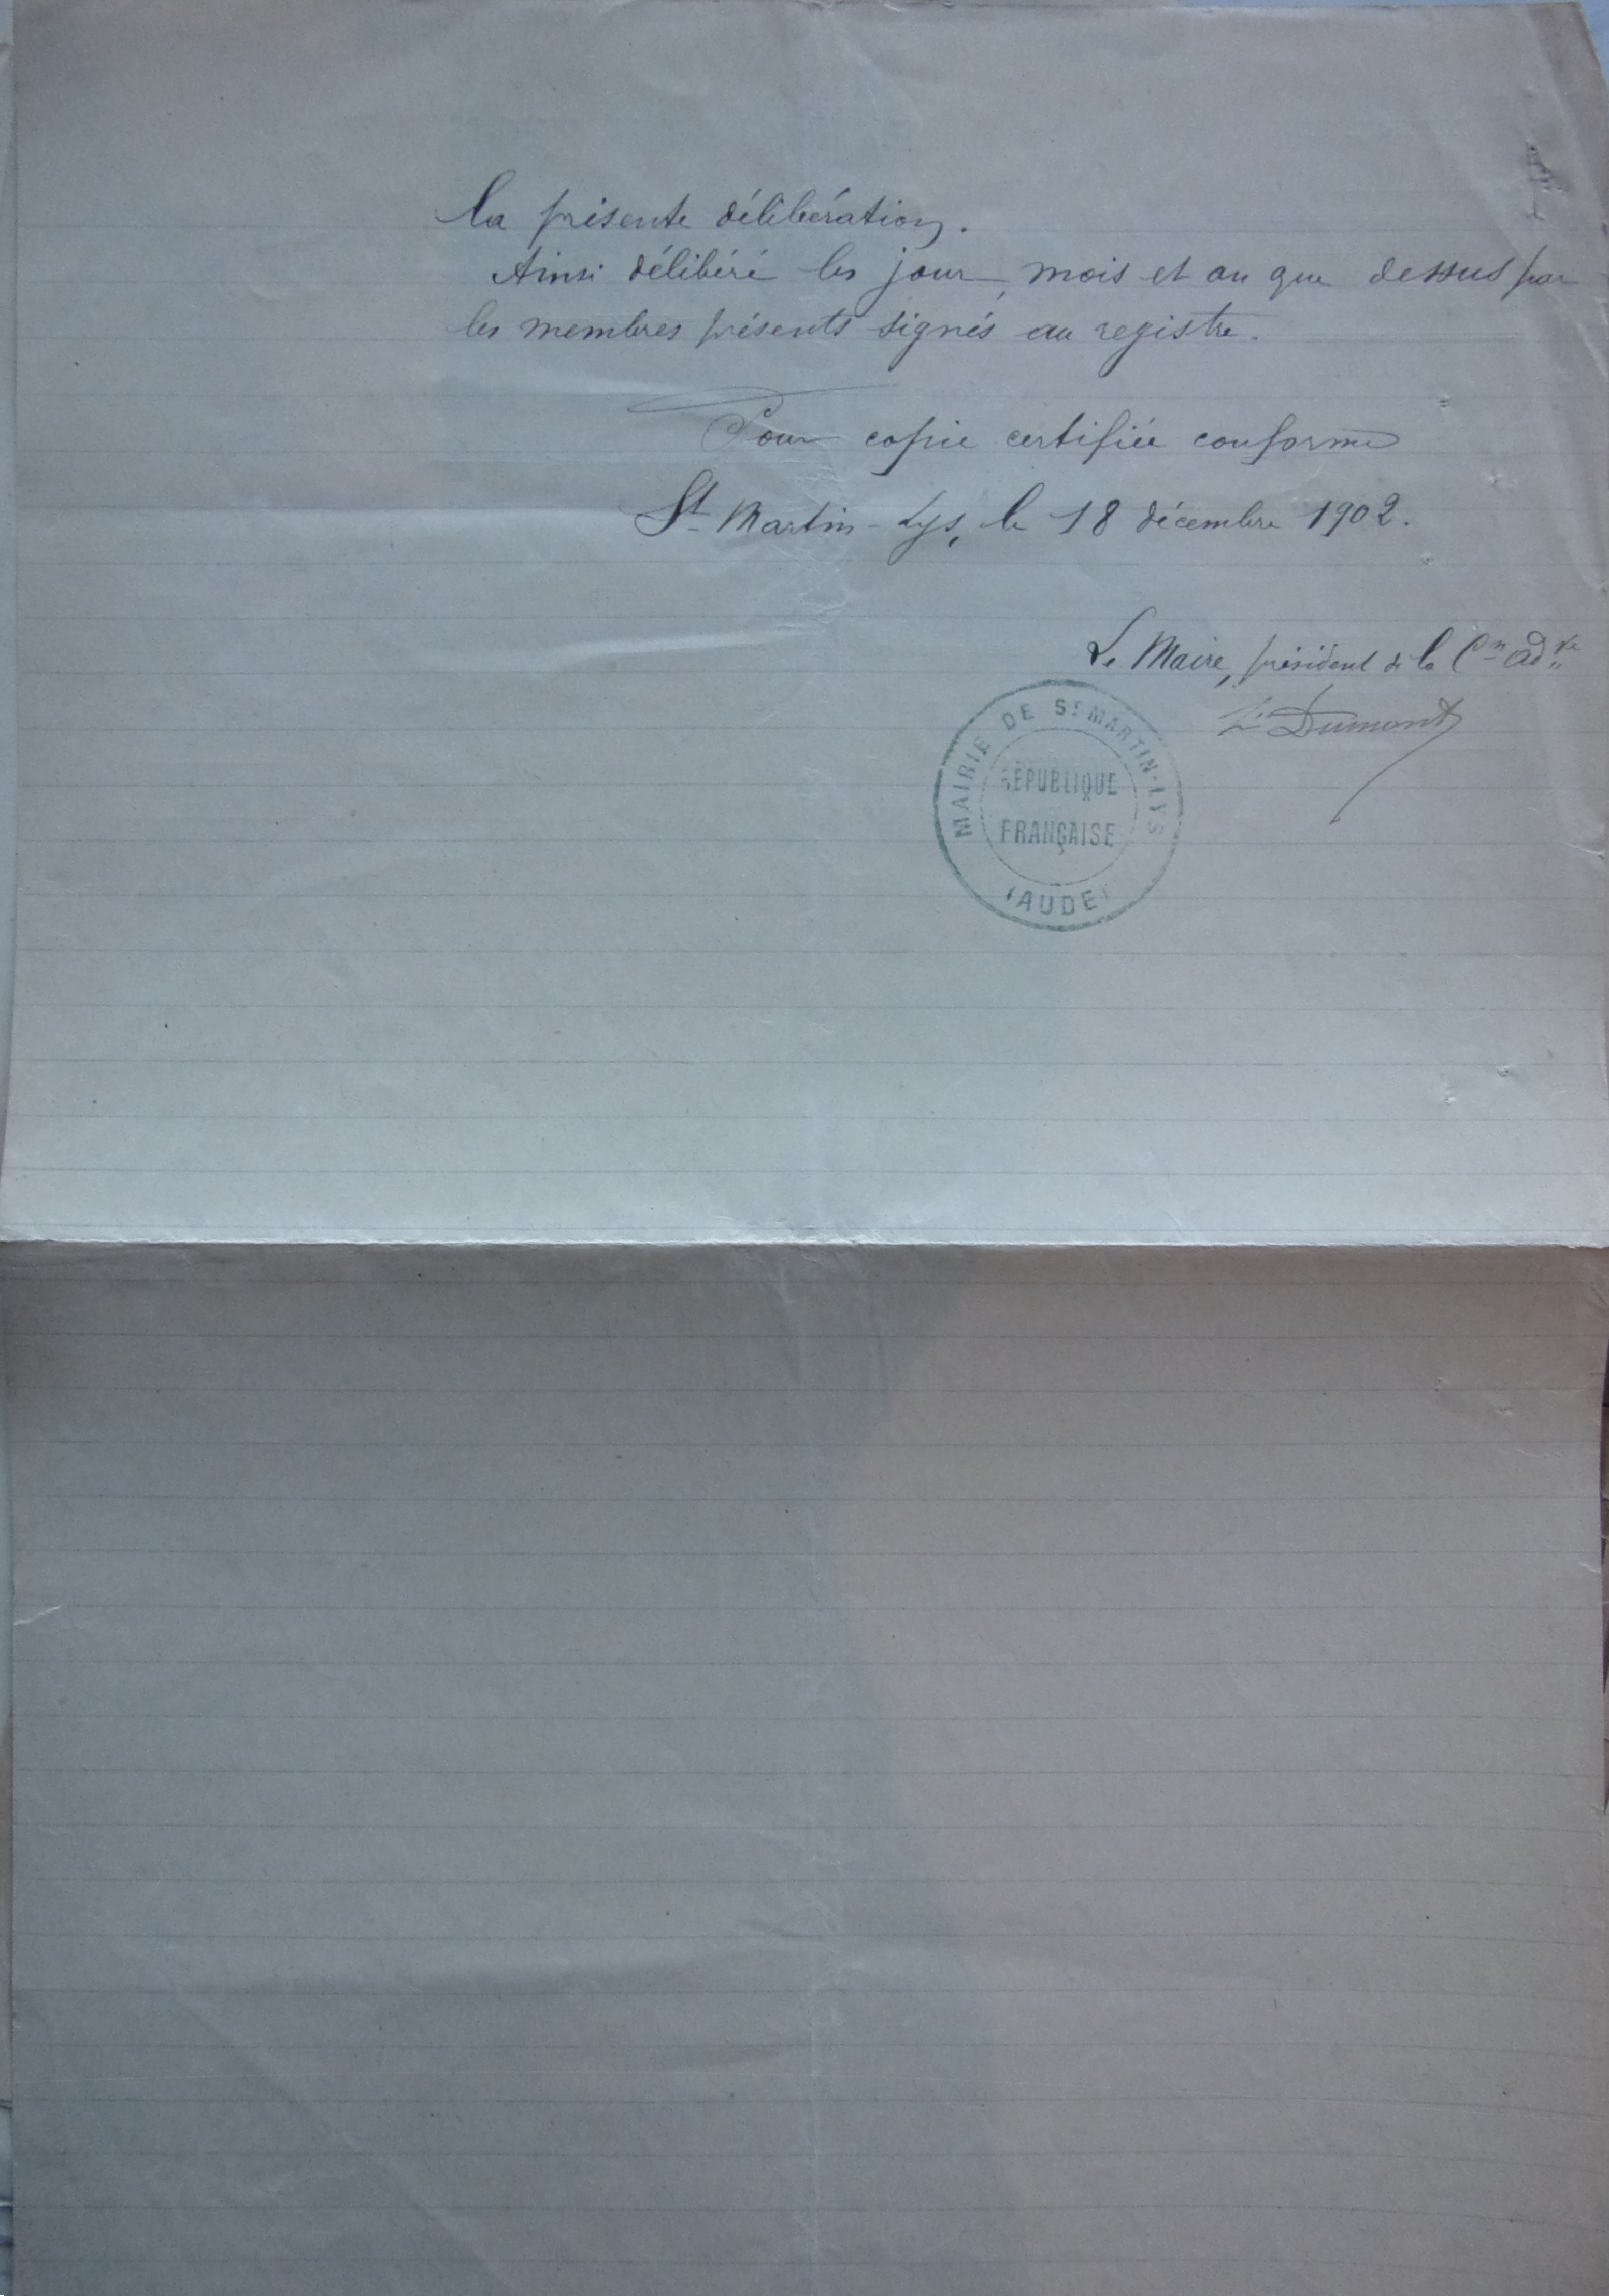 la présente délibération.
Ainsi délibéré les jour, mois et an que dessus par
les membres présents signés au registre.
Pour copie certifiée conforme
St Martin-Lys, le 18 décembre 1902.
Le Maire, président de la Cn adve
Dumont
MAIRIE DE St MARTIN-LYS
RÉPUBLIQUE
FRANÇAISE
(AUDE)